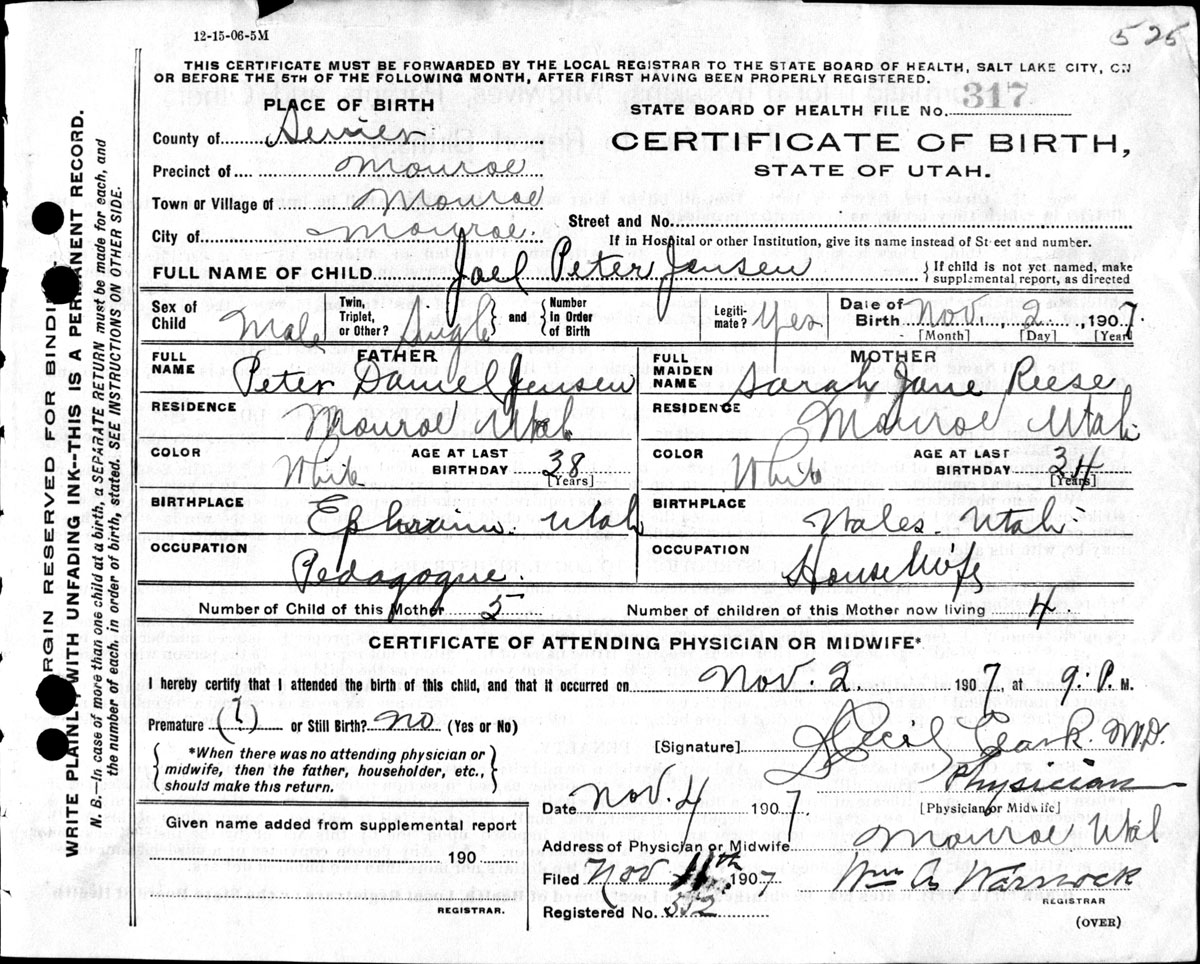 525
12-15-06-5M
THIS CERTIFICATE MUST BE FORWARDED BY THE LOCAL REGISTRAR TO THE STATE BOARD OF HEALTH, SALT LAKE CITY, ON
OR BEFORE THE 5TH OF THE FOLLOWING MONTH, AFTER FIRST HAVING BEEN PROPERLY REGISTERED.
PLACE OF BIRTH
County of Sevier
Precinct of Monroe
Town or Village of Monroe
City of Monroe.
STATE BOARD OF HEALTH FILE No. 317
CERTIFICATE OF BIRTH,
STATE OF UTAH.
Street and No.
If in Hospital or other Institution, give its name instead of Street and number.
FULL NAME OF CHILD Joel Peter Jensen
{If child is not yet named, make
supplemental report, as directed
Sex of Child Male
Twin, Triplet, or Other? Single and Number In Order of Birth
Legitimate? Yes
Date of Birth Nov, 2, 1907
[Month] [Day] [Year]
FATHER
FULL NAME Peter Daniel Jensen
RESIDENCE Monroe Utah
COLOR White AGE AT LAST BIRTHDAY 38
[Years]
BIRTHPLACE Ephraim. Utah
OCCUPATION Pedagogue.
MOTHER
FULL MAIDEN NAME Sarah Jane Reese
RESIDENCE Monroe Utah
COLOR White AGE AT LAST BIRTHDAY 34
[Years]
BIRTHPLACE Wales. Utah
OCCUPATION HouseWife
Number of Child of this Mother 5 Number of children of this Mother now living 4
CERTIFICATE OF ATTENDING PHYSICIAN OR MIDWIFE*
I hereby certify that I attended the birth of this child, and that it occurred on Nov. 2 1907, at 9. P. M.
Premature ( ) or Still Birth? no (Yes or No)
*When there was no attending physician or
midwife, then the father, householder, etc.,
should make this return.
[Signature] Clark. M.D.
Physician
[Physician or Midwife]
Date Nov. 4 1907
Address of Physician or Midwife Monroe Utah
Given name added from supplemental report
190
REGISTRAR.
Filed Nov 11th 1907 Wm A Warnock
REGISTRAR
Registered No. 52
(OVER)
MARGIN RESERVED FOR BINDING
WRITE PLAINLY WITH UNFADING INK--THIS IS A PERMANENT RECORD.
N. B.--In case of more than one child at a birth, a SEPARATE RETURN must be made for each, and
the number of each, in order of birth, stated. SEE INSTRUCTIONS ON OTHER SIDE.